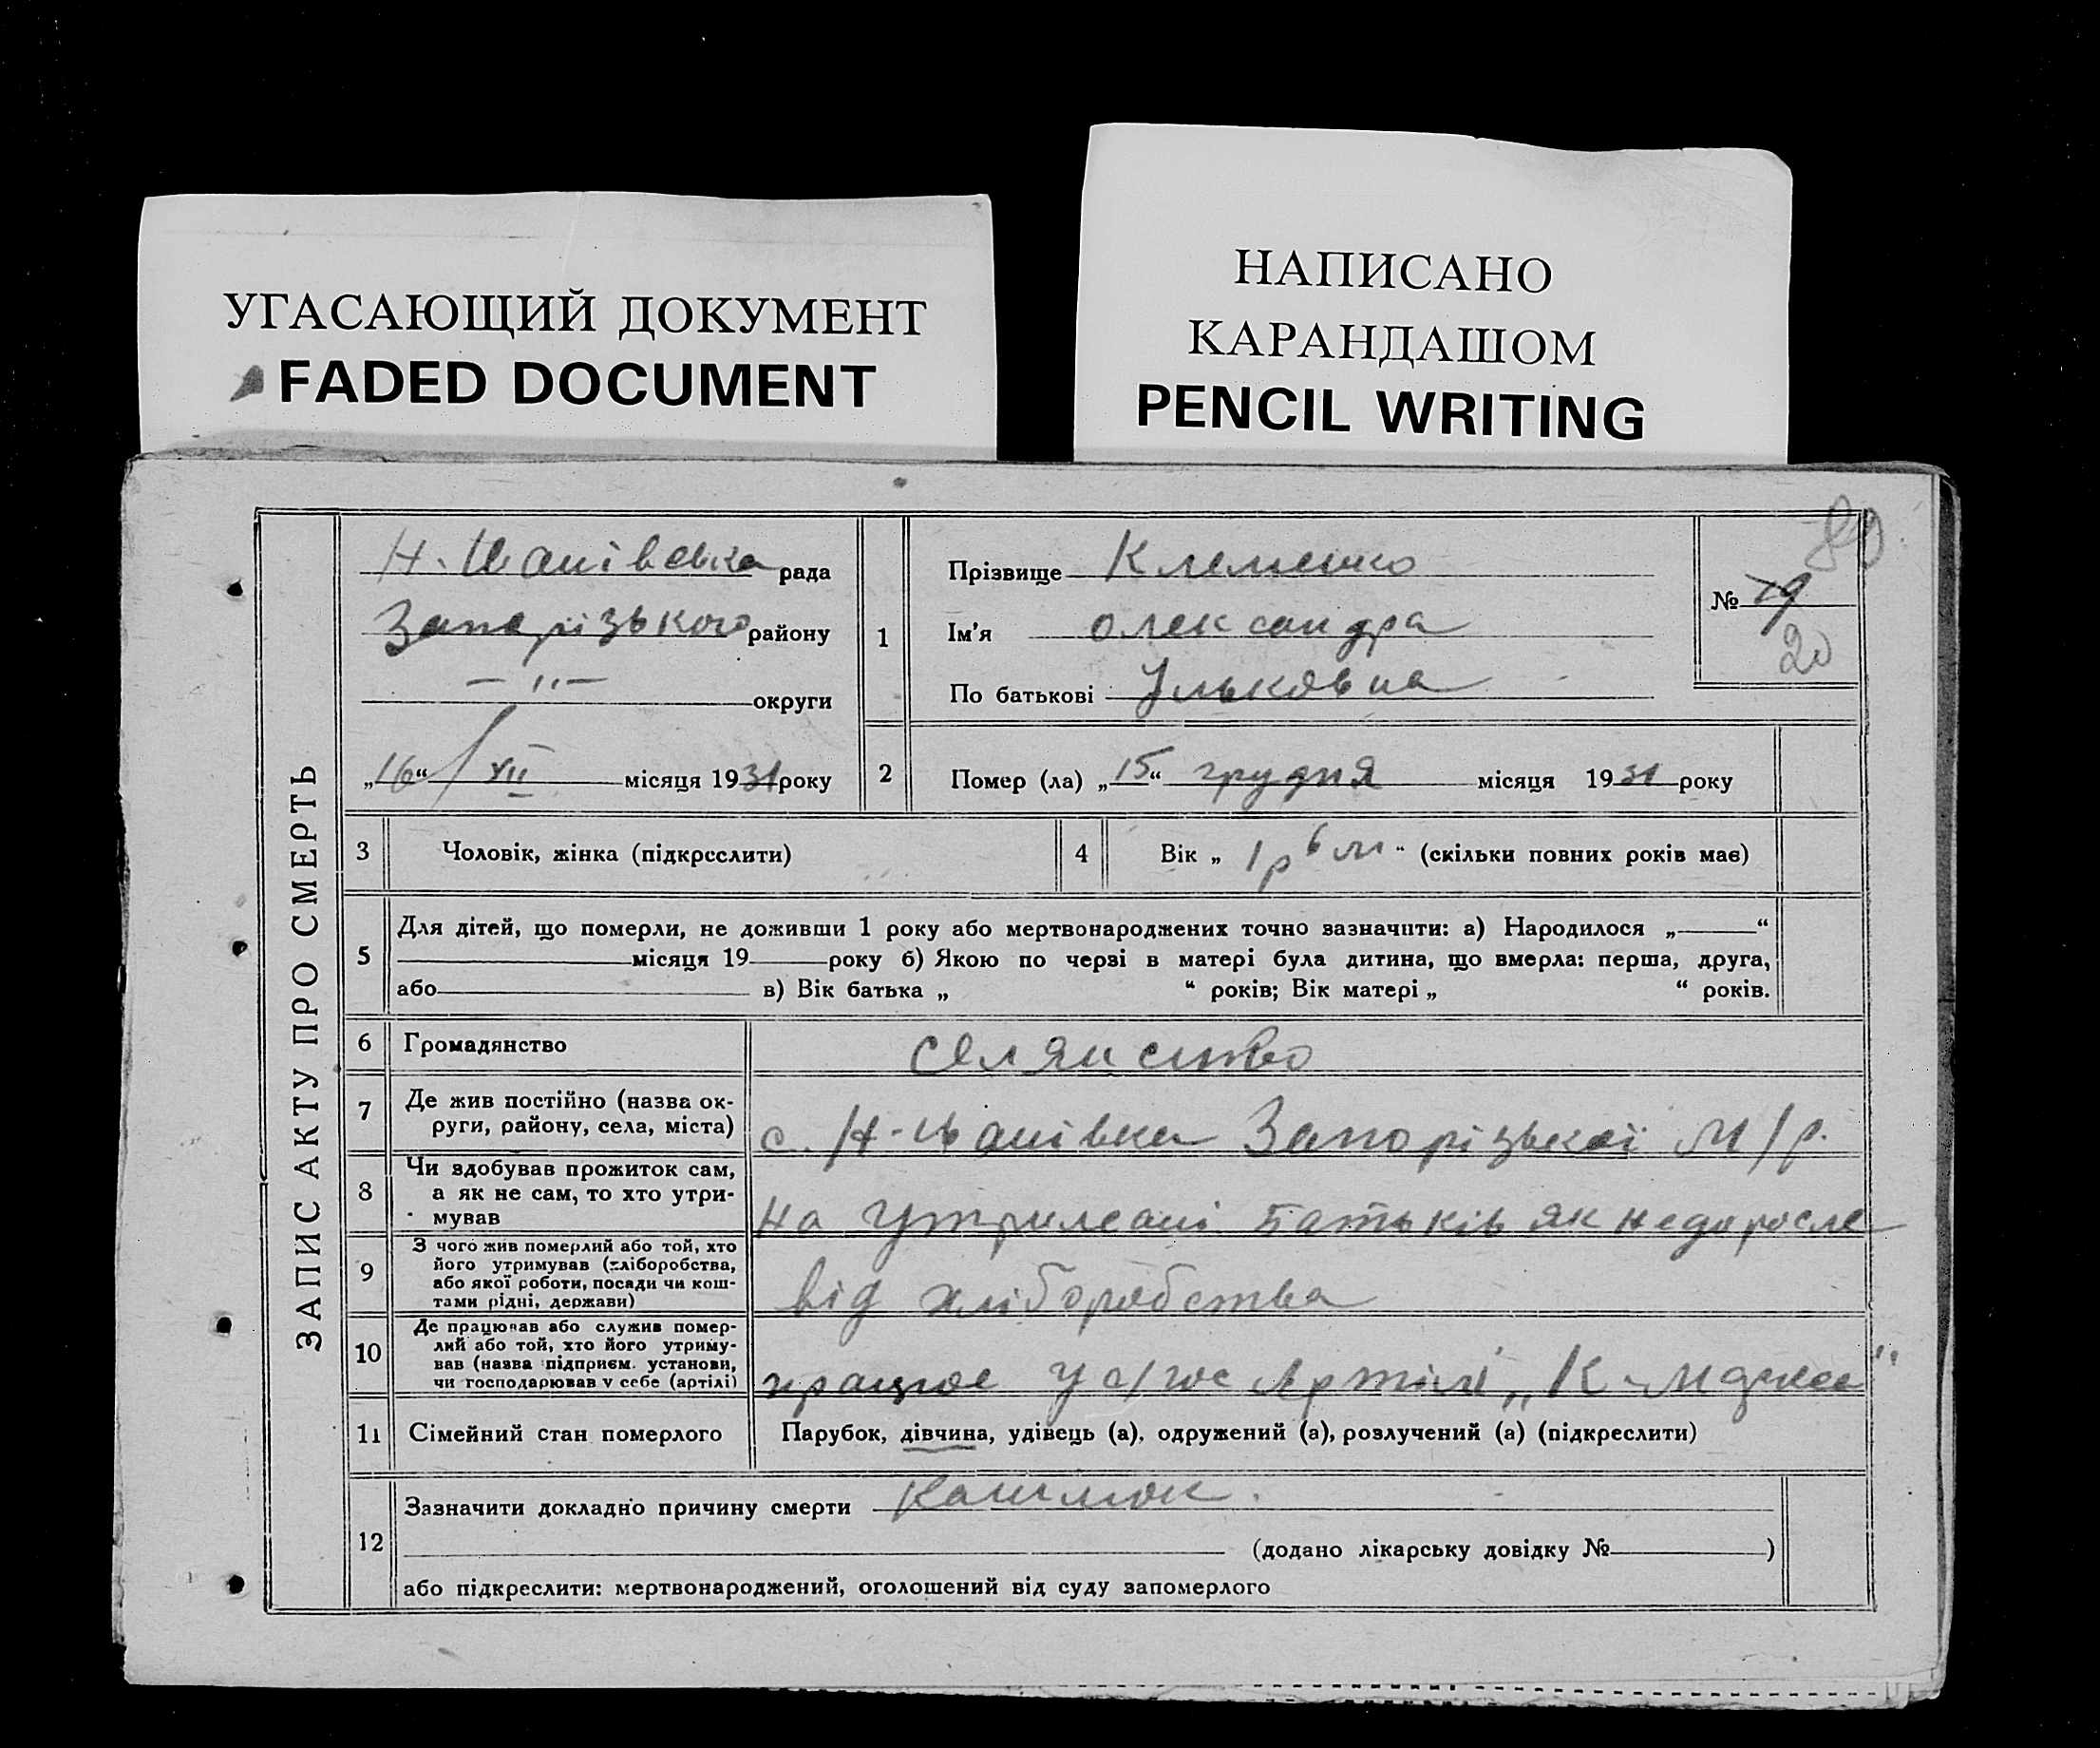 УГАСАЮЩИЙ ДОКУМЕНТ
FADED DOCUMENT
НАПИСАНО
КАРАНДАШОМ
PENCIL WRITING
ЗАПИС АКТУ ПРО СМЕРТЬ
Н. Іванівська рада
Запорізького району
— " — округи
„16“ / XII місяця 1931 року
1
Прізвище Клеменко
Ім'я Олександра
По батькові Ульковна
80
№ 79
20
2 Помер (ла) „15“ грудня місяця 1931 року
3 Чоловік, жінка (підкреслити)
4 Вік „ 1 р 6 м “ (скільки повних років має)
5 Для дітей, що померли, не доживши 1 року або мертвонароджених точно зазначити: а) Народилося „ “
місяця 19 року б) Якою по черзі в матері була дитина, що вмерла: перша, друга,
або в) Вік батька „ “ років; Вік матері „ “ років.
6 Громадянство селянство
7 Де жив постійно (назва ок-
руги, району, села, міста) с. Н-Іванівка Запорізької М/р.
8 Чи здобував прожиток сам,
а як не сам, то хто утри-
мував на утримані батьків як недоросле
9 З чого жив померлий або той, хто
його утримував (хліборобства,
або якої роботи, посади чи кош-
тами рідні, держави) від хліборобства
10 Де працював або служив помер-
лий або той, хто його утриму-
вав (назва підприєм. установи,
чи господарював у себе (артілі) працює у с/гос Артілі „К-
11 Сімейний стан померлого Парубок, дівчина, удівець (а), одружений (а), розлучений (а) (підкреслити)
12 Зазначити докладно причину смерти кашлюк.
(додано лікарську довідку № )
або підкреслити: мертвонароджений, оголошений від суду запомерлого